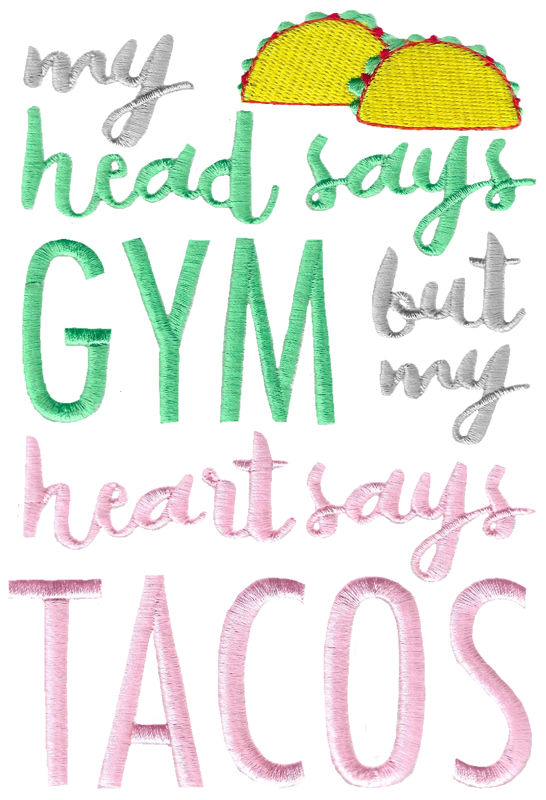 my
head says
GYM but
my
heart says
TACOS